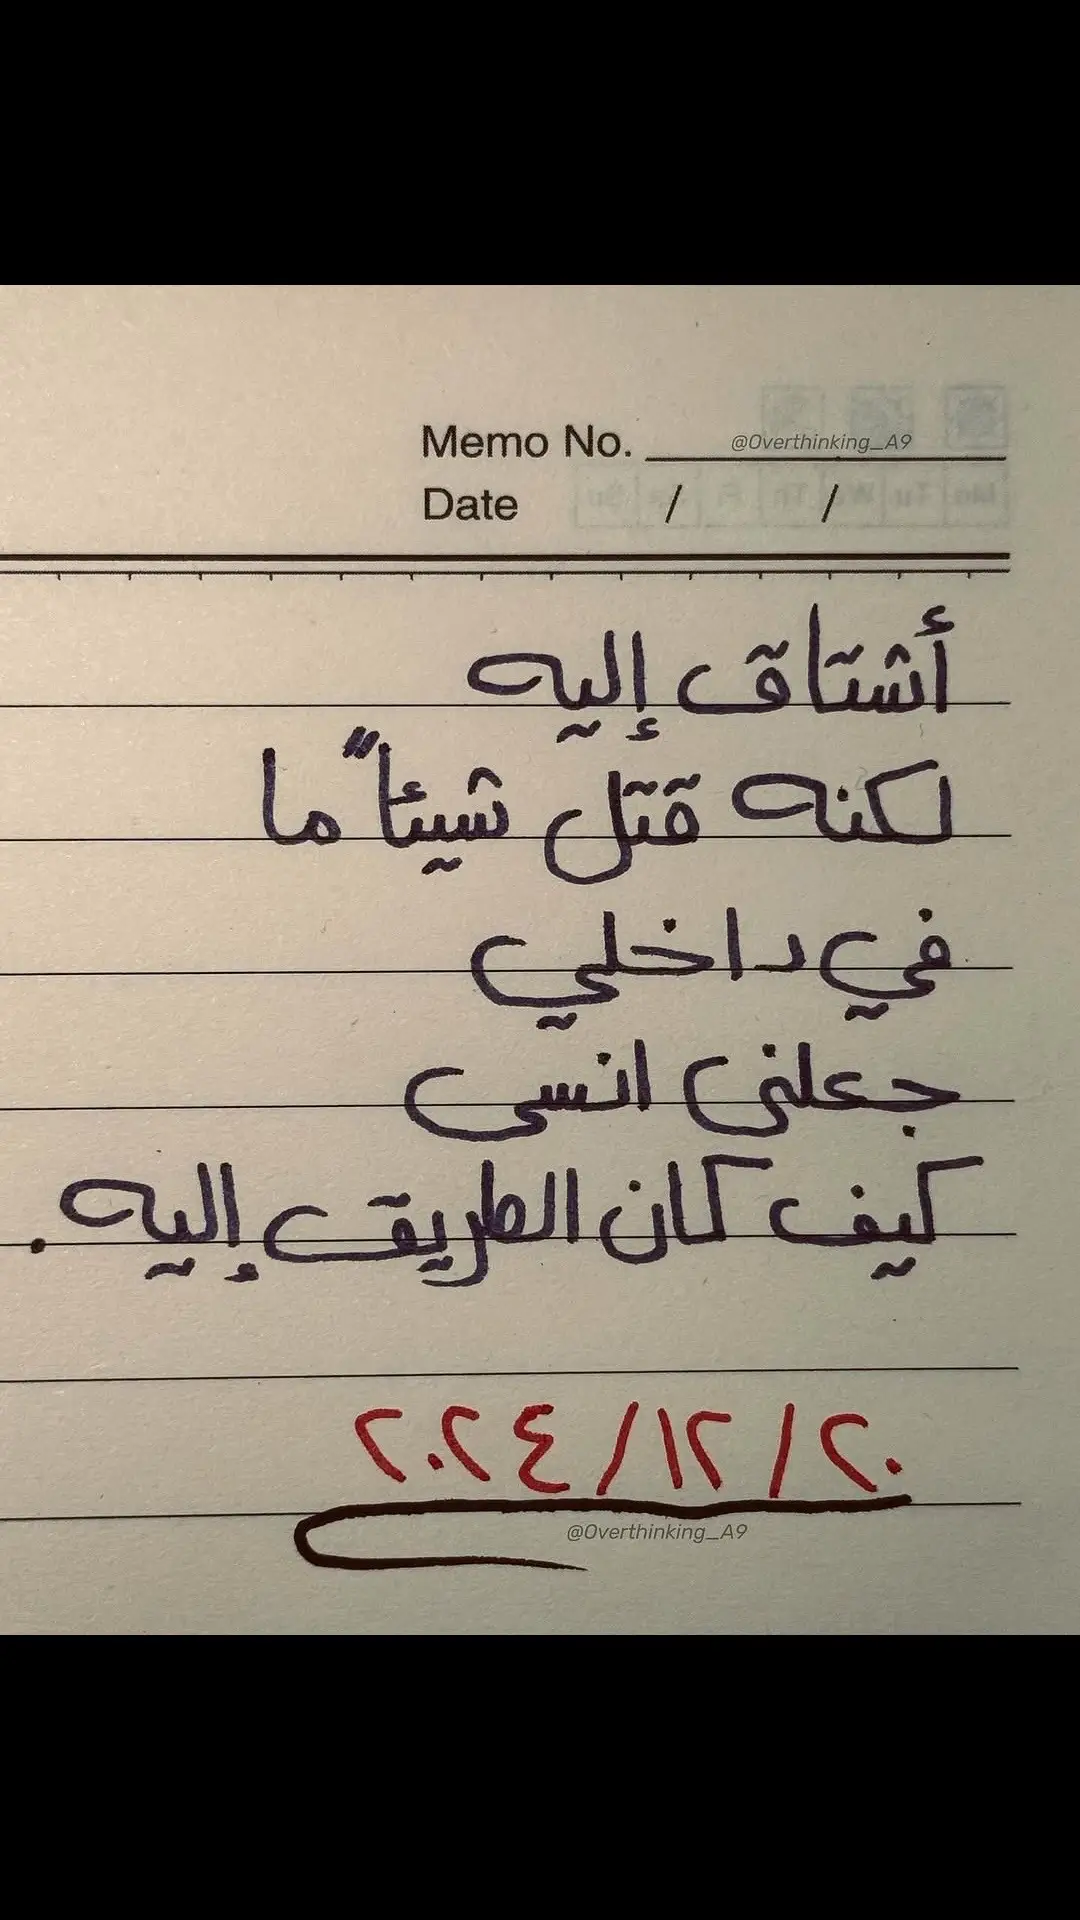 Memo No. @Overthinking_A9
Date / /
أشتاق إليه
لكنه قتل شيئاً ما
في داخلي
جعلني انسى
كيف كان الطريق إليه.
٢٠/١٢/٢٠٢٤
@Overthinking_A9